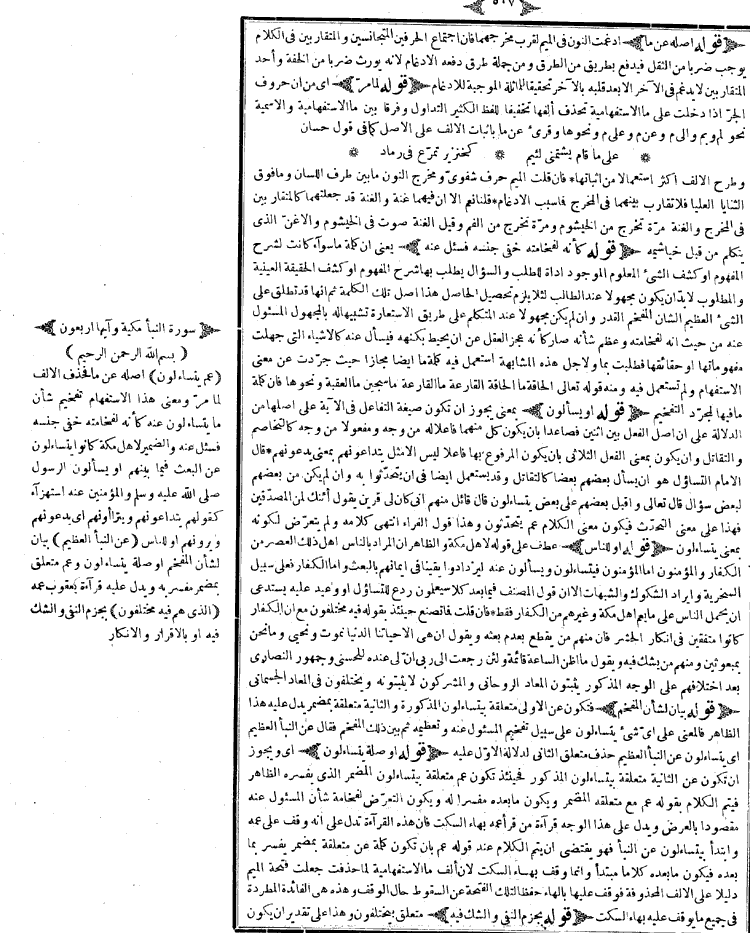 ٥٦٧
﴿قوله اصله عن ما﴾ ادغمت النون فى الميم لقرب مخرجهما فان اجتماع الحرفين المتجانسين والمتقاربين فى الكلام
يوجب ضربا من الثقل فيدفع بطريق من الطرق ومن جملة طرق دفعه الادغام لانه يورث ضربا من الخفة واحد
المتقاربين لا يدغم فى الآخر الا بعد قلبه بالآخر تحقيقا للماثلة الموجبة للادغام ﴿قوله لمامر﴾ اى من ان حروف
الجر اذا دخلت على ما الاستفهامية تحذف ألفها تخفيفا للفظ الكثير التداول وفرقا بين ما الاستفهامية والاسمية
نحو لم وبم والى م وعن م وعلى م ونحوها وقرئ عن ما باثبات الالف على الاصل كما فى قول حسان
* على ما قام يشتمنى لئيم * كخنزير تمرغ فى رماد *
وطرح الالف اكثر استعمالا من اثباتها * فان قلت الميم حرف شفوى ومخرج النون مابين طرف اللسان ومافوق
الثنايا العليا فلا تقارب بينهما فى المخرج فما سبب الادغام * قلنا نعم الا ان فيهما غنة والغنة قد جعلتهما كالمتقاربين
فى المخرج والغنة مرة تخرج من الخيشوم ومرة تخرج من الفم وقيل الغنة صوت فى الخيشوم والاغن الذى
يتكلم من قبل خياشيمه ﴿قوله كأنه لفخامته خفى جنسه فسئل عنه﴾ يعنى ان كلة ماسوآء كانت لشرح
المفهوم او كشف الشئ المعلوم الموجود اداة للطلب والسؤال يطلب بها شرح المفهوم او كشف الحقيقة العينية
والمطلوب لابد ان يكون مجهولا عند الطالب لئلا يلزم تحصيل الحاصل هذا اصل تلك الكلمة ثم انها قد تطلق على
الشئ العظيم الشان المفخم القدر وان لم يكن مجهولا عند المتكلم على طريق الاستعارة تشبيها له بالمجهول المسئول
عنه من حيث انه لفخامته وعظم شأنه صار كأنه عجز العقل عن ان يحيط بكنهه فيسأل عنه كالاشياء التى جهلت
مفهوماتها او حقائقها فطلبت بما ولاجل هذه المشابهة استعمل فيه كلة ما ايضا مجازا حيث جردت عن معنى
الاستفهام ولم تستعمل فيه ومنه قوله تعالى الحاقة ما الحاقة القارعة ما القارعة ما سجين ما العقبة ونحوها فان كلة
ما فيها لمجرد التفخيم ﴿قوله او يسألون﴾ بمعنى يجوز ان تكون صيغة التفاعل فى الآية على اصلها من
الدلالة على ان اصل الفعل بين اثنين فصاعدا بان يكون كل منهما فاعلا له من وجه ومفعولا من وجه كالتخاصم
والتقاتل وان يكون بمعنى الفعل الثلاثى بان يكون المرفوع بها فاعلا ليس الامثل يتداعونهم بمعنى يدعونهم * قال
الامام التساؤل هو ان يسأل بعضهم بعضا كالتقاتل وقد يستعمل ايضا فى ان يتحدثوا به وان لم يكن من بعضهم
لبعض سؤال قال تعالى واقبل بعضهم على بعض يتساءلون قال قائل منهم انى كان لى قرين يقول أئنك لمن المصدقين
فهذا على معنى التحدث فيكون معنى الكلام عم يتحدثون وهذا قول الفراء انتهى كلامه ولم يتعرض لكونه
بمعنى يتساءلون ﴿قوله او للناس﴾ عطف على قوله لاهل مكة والظاهر ان المراد بالناس اهل ذلك العصر من
الكفار والمؤمنون اما المؤمنون فيتساءلون ويسألون عنه ليزدادوا يقينا فى ايمانهم بالبعث واما الكفار فعلى سبيل
السخرية وايراد الشكوك والشبهات الا ان قول المصنف فيما بعد كلا سيعلمون ردع للتساؤل او وعيد عليه يستدعى
ان يحمل الناس على مايعم اهل مكة وغيرهم من الكفار فقط * فان قلت فما تصنع حينئذ بقوله فيه مختلفون مع ان الكفار
كانوا متفقين فى انكار الحشر فان منهم من يقطع بعدم بعثه ويقول ان هى الا حياتنا الدنيا نموت ونحيى ومانحن
بمبعوثين ومنهم من يشك فيه ويقول ما اظن الساعة قائمة ولئن رجعت الى ربى ان لى عنده للحسنى وجمهور النصارى
بعد اختلافهم على الوجه المذكور يثبتون المعاد الروحانى والمشركون لايثبتونه ويختلفون فى المعاد الجسمانى
﴿قوله بيان لشأن المفخم﴾ فتكون عن الاولى متعلقة بيتساءلون المذكورة والثانية متعلقة بمضمر يدل عليه هذا
الظاهر فالمعنى على اى شئ يتساءلون على سبيل تفخيم المسئول عنه وتعظيمه ثم بين ذلك المفخم فقال عن النبأ العظيم
اى يتساءلون عن النبأ العظيم حذف متعلق الثانى لدلالة الاول عليه ﴿قوله او صلة يتساءلون﴾ اى ويجوز
ان تكون عن الثانية متعلقة بيتساءلون المذكور فحينئذ تكون عم متعلقة بيتساءلون المضمر الذى يفسره الظاهر
فيتم الكلام بقوله عم مع متعلقه المضمر ويكون مابعده مفسرا له ويكون التعرض لفخامة شأن المسئول عنه
مقصودا بالعرض ويدل على هذا الوجه قرآءة من قرأ عمه بهاء السكت فان هذه القرآءة تدل على انه وقف على عمه
وابتدأ بيتساءلون عن النبأ فهو يقتضى ان يتم الكلام عند قوله عم بان تكون كلة عن متعلقة بمضمر يفسر بما
بعده فيكون مابعده كلاما مبتدأ وانما وقف بهاء السكت لان ألف ما الاستفهامية لما حذفت جعلت فتحة الميم
دليلا على الالف المحذوفة فوقف عليها بالهاء حفظا لتلك الفتحة عن السقوط حال الوقف وهذه هى الفائدة المطردة
فى جميع مايوقف عليه بهاء السكت ﴿قوله بجزم النفى والشك فيه﴾ متعلق بمختلفون وهذا على تقدير ان يكون
﴿سورة النبأ مكية وآيها اربعون﴾
(بسم الله الرحمن الرحيم)
(عم يتساءلون) اصله عن ما فحذف الالف
لما مر ومعنى هذا الاستفهام تفخيم شأن
ما يتساءلون عنه كأنه لفخامته خفى جنسه
فسئل عنه والضمير لاهل مكة كانوا يتساءلون
عن البعث فيما بينهم او يسألون الرسول
صلى الله عليه وسلم والمؤمنين عنه استهزآء
كقولهم يتداعونهم ويترآءونهم اى يدعونهم
ويرونهم او للناس (عن النبأ العظيم) بيان
لشأن المفخم او صلة يتساءلون وعم متعلق
بمضمر مفسر به ويدل عليه قرآءة يعقوب عمه
(الذى هم فيه مختلفون) بجزم النفى والشك
فيه او بالاقرار والانكار